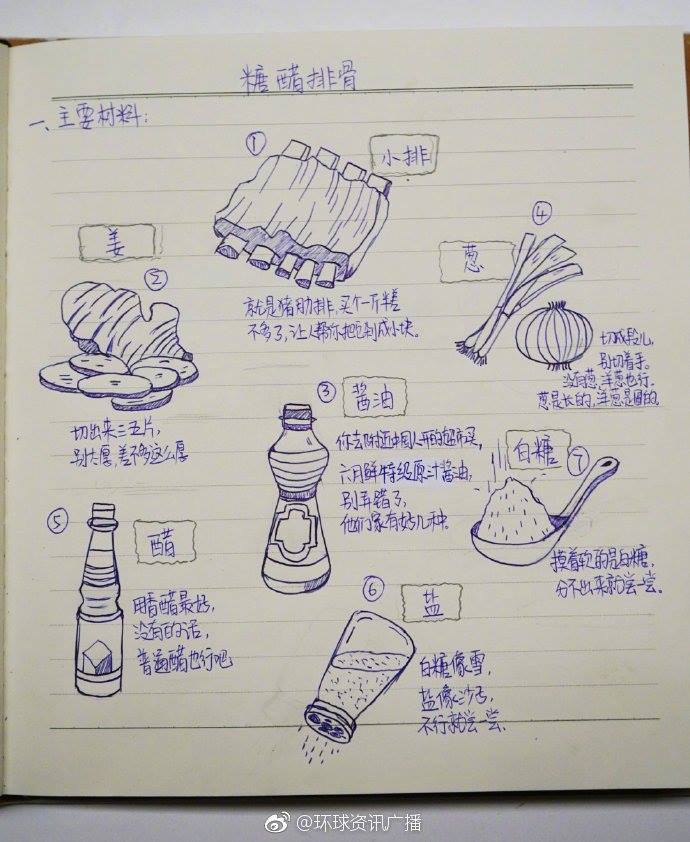 糖醋排骨
一、主要材料:
①
小排
就是猪肋排,买个一斤半差
不多了,让人帮你把它剁成小块。
姜
②
切出来三五片,
别太厚,差不多这么厚
④
葱
切成段儿,
别切着手。
没有葱,洋葱也行。
葱是长的,洋葱是圆的。
③
酱油
你去附近中国人开的超市买,
六月鲜特级原汁酱油,
别弄错了,
他们家有好几种。
白糖
⑦
摸着软的是白糖,
分不出来就尝一尝。
⑤
醋
用香醋最好,
没有的话,
普通醋也行吧
⑥
盐
白糖像雪,
盐像沙子,
不行就尝一尝.
@环球资讯广播